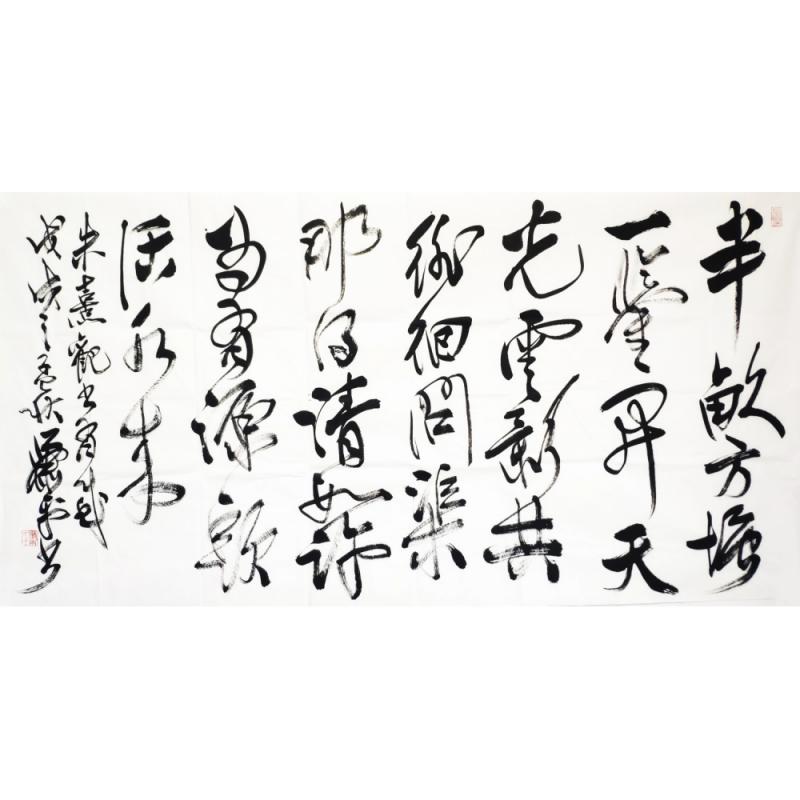 半畝方塘
一鑒開天
光雲影共
徘徊問渠
那得清如許
為有源頭
活水来
朱熹觀书有感
戊戌之孟秋书